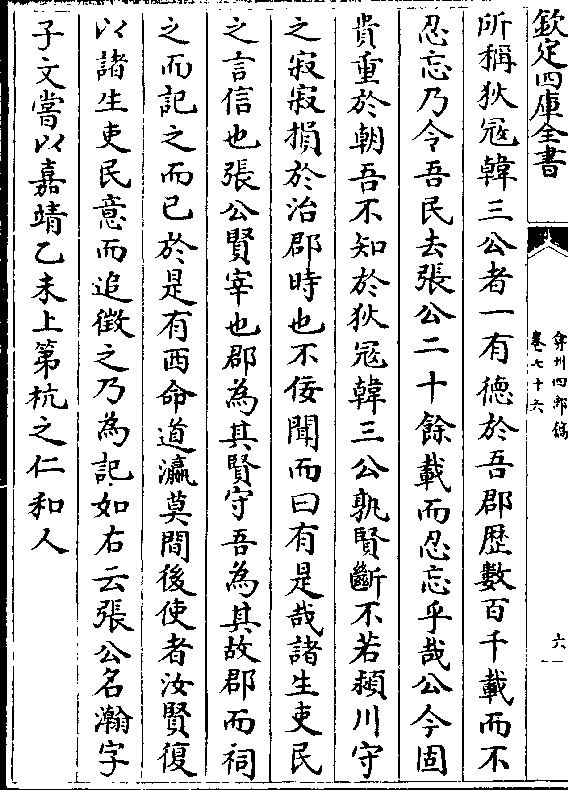 欽定四庫全書
弇州四部稿
卷七十六
六
所稱狄冦韓三公者一有德於吾郡歴數百千載而不
忍忘乃今吾民去張公二十餘載而忍忘乎哉公今固
貴重於朝吾不知於狄冦韓三公孰賢斷不若潁川守
之寂寂損於治郡時也不佞聞而曰有是哉諸生吏民
之言信也張公賢宰也郡為其賢守吾為其故郡而祠
之而記之而已於是有西命道瀛莫間後使者汝賢復
以諸生吏民意而追徵之乃為記如右云張公名瀚字
子文嘗以嘉靖乙未上第杭之仁和人